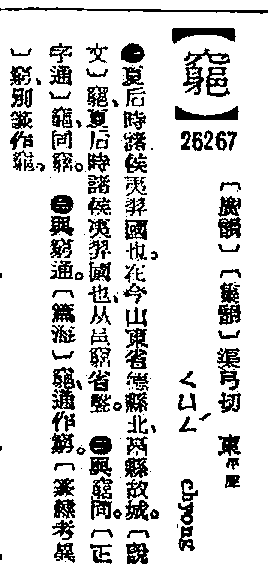 【竆】
26267
〔廣韻〕〔集韻〕渠弓切 東平聲
ㄑㄩㄥˊ chyong
㊀夏后時諸侯夷羿國也。在今山東省德縣北、鬲縣故城。〔說
文〕竆、夏后時諸侯夷羿國也、从邑窮省聲。㊁與窮同。〔正
字通〕竆、同窮。㊂與窮通。〔篇海〕竆、通作窮。〔篆隸考異
〕窮、別篆作竆。